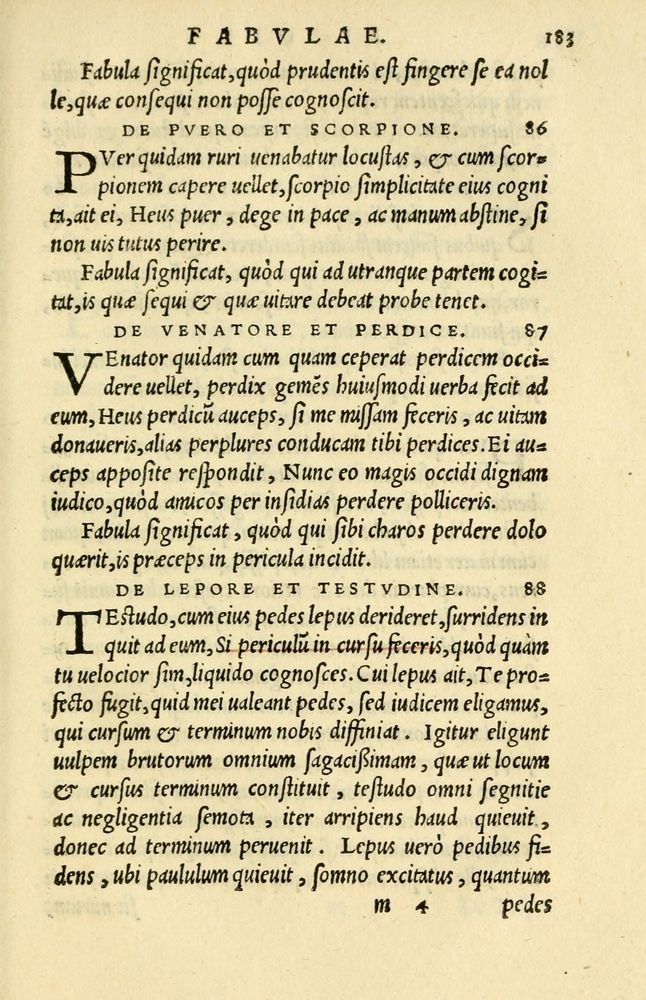 FABVLAE. 183
Fabula ſignificat, quòd prudentis eſt fingere ſe ea nol
le, quæ conſequi non poſſe cognoſcit.
DE PVERO ET SCORPIONE. 86
PVer quidam ruri uenabatur locuſtas, & cum ſcor-
pionem capere uellet, ſcorpio ſimplicitate eius cogni
ta, ait ei, Heus puer, dege in pace, ac manum abſtine, ſi
non uis tutus perire.
Fabula ſignificat, quòd qui ad utranque partem cogi-
tat, is quæ ſequi & quæ uitare debeat probe tenet.
DE VENATORE ET PERDICE. 87
VEnator quidam cum quam ceperat perdicem occi-
dere uellet, perdix gemẽs huiuſmodi uerba fecit ad
eum, Heus perdicũ auceps, ſi me miſſam feceris, ac uitam
donaueris, alias perplures conducam tibi perdices. Ei au-
ceps appoſite reſpondit, Nunc eo magis occidi dignam
iudico, quòd amicos per inſidias perdere polliceris.
Fabula ſignificat, quòd qui ſibi charos perdere dolo
quærit, is præceps in pericula incidit.
DE LEPORE ET TESTVDINE. 88
TEſtudo, cum eius pedes lepus derideret, ſurridens in
quit ad eum, Si periculũ in curſu feceris, quòd quàm
tu uelocior ſim, liquido cognoſces. Cui lepus ait, Te pro-
fecto fugit, quid mei ualeant pedes, ſed iudicem eligamus,
qui curſum & terminum nobis diffiniat. Igitur eligunt
uulpem brutorum omnium ſagacißimam, quæ ut locum
& curſus terminum conſtituit, teſtudo omni ſegnitie
ac negligentia ſemota, iter arripiens haud quieuit,
donec ad terminum peruenit. Lepus uerò pedibus fi-
dens, ubi paululum quieuit, ſomno excitatus, quantum
m 4 pedes